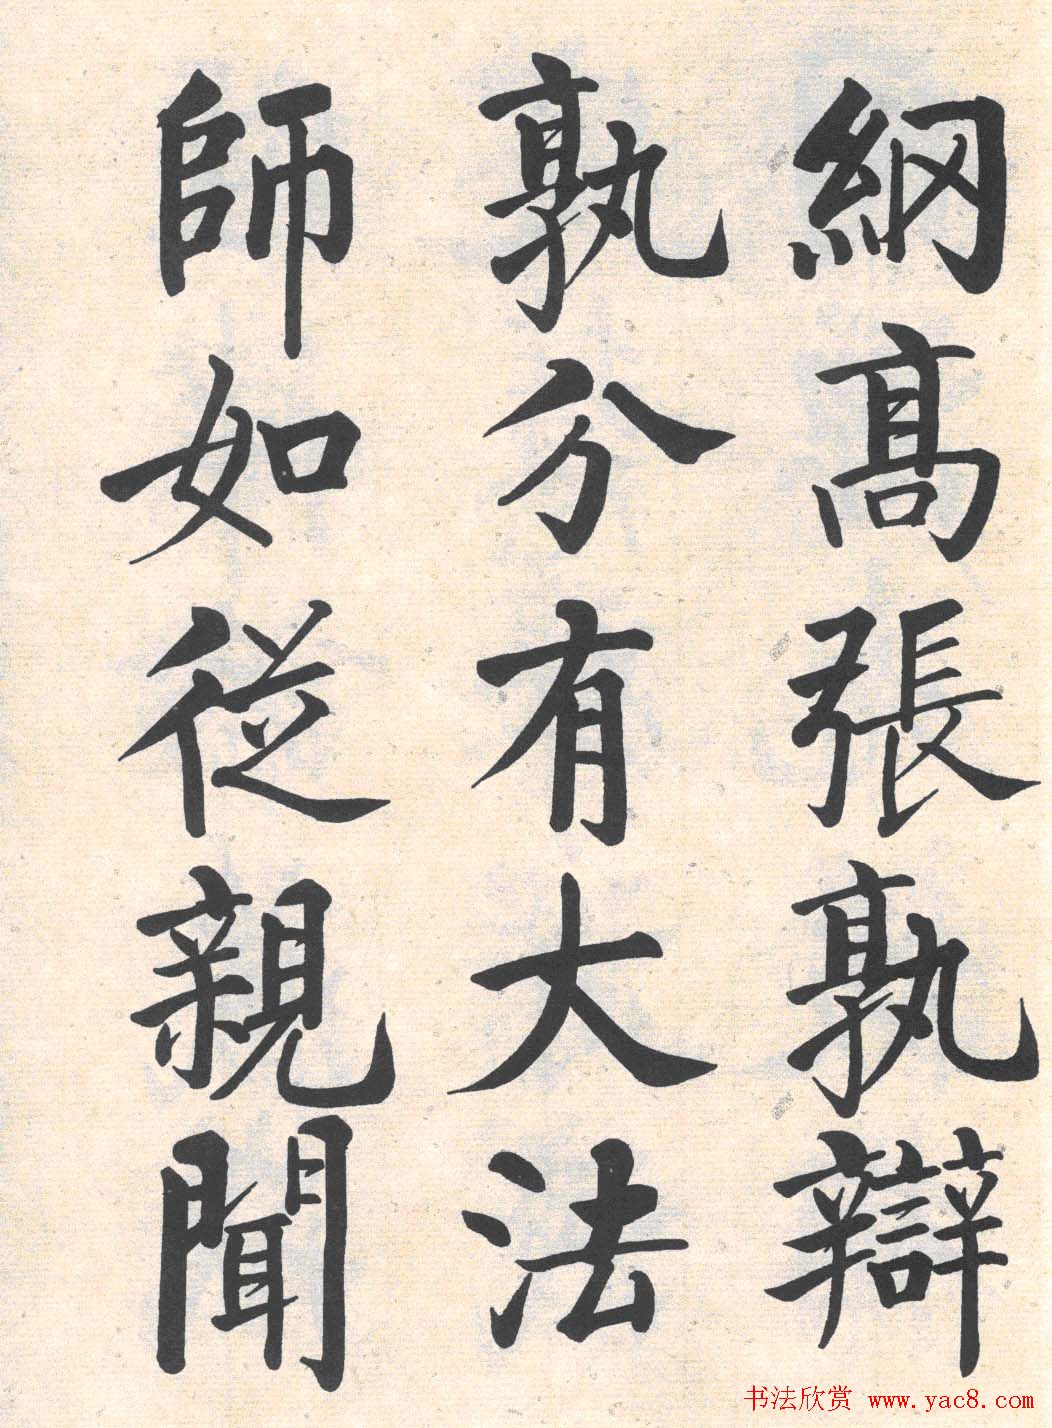 綱高張孰辯
孰分有大法
師如從親聞
书法欣赏 www.yac8.com